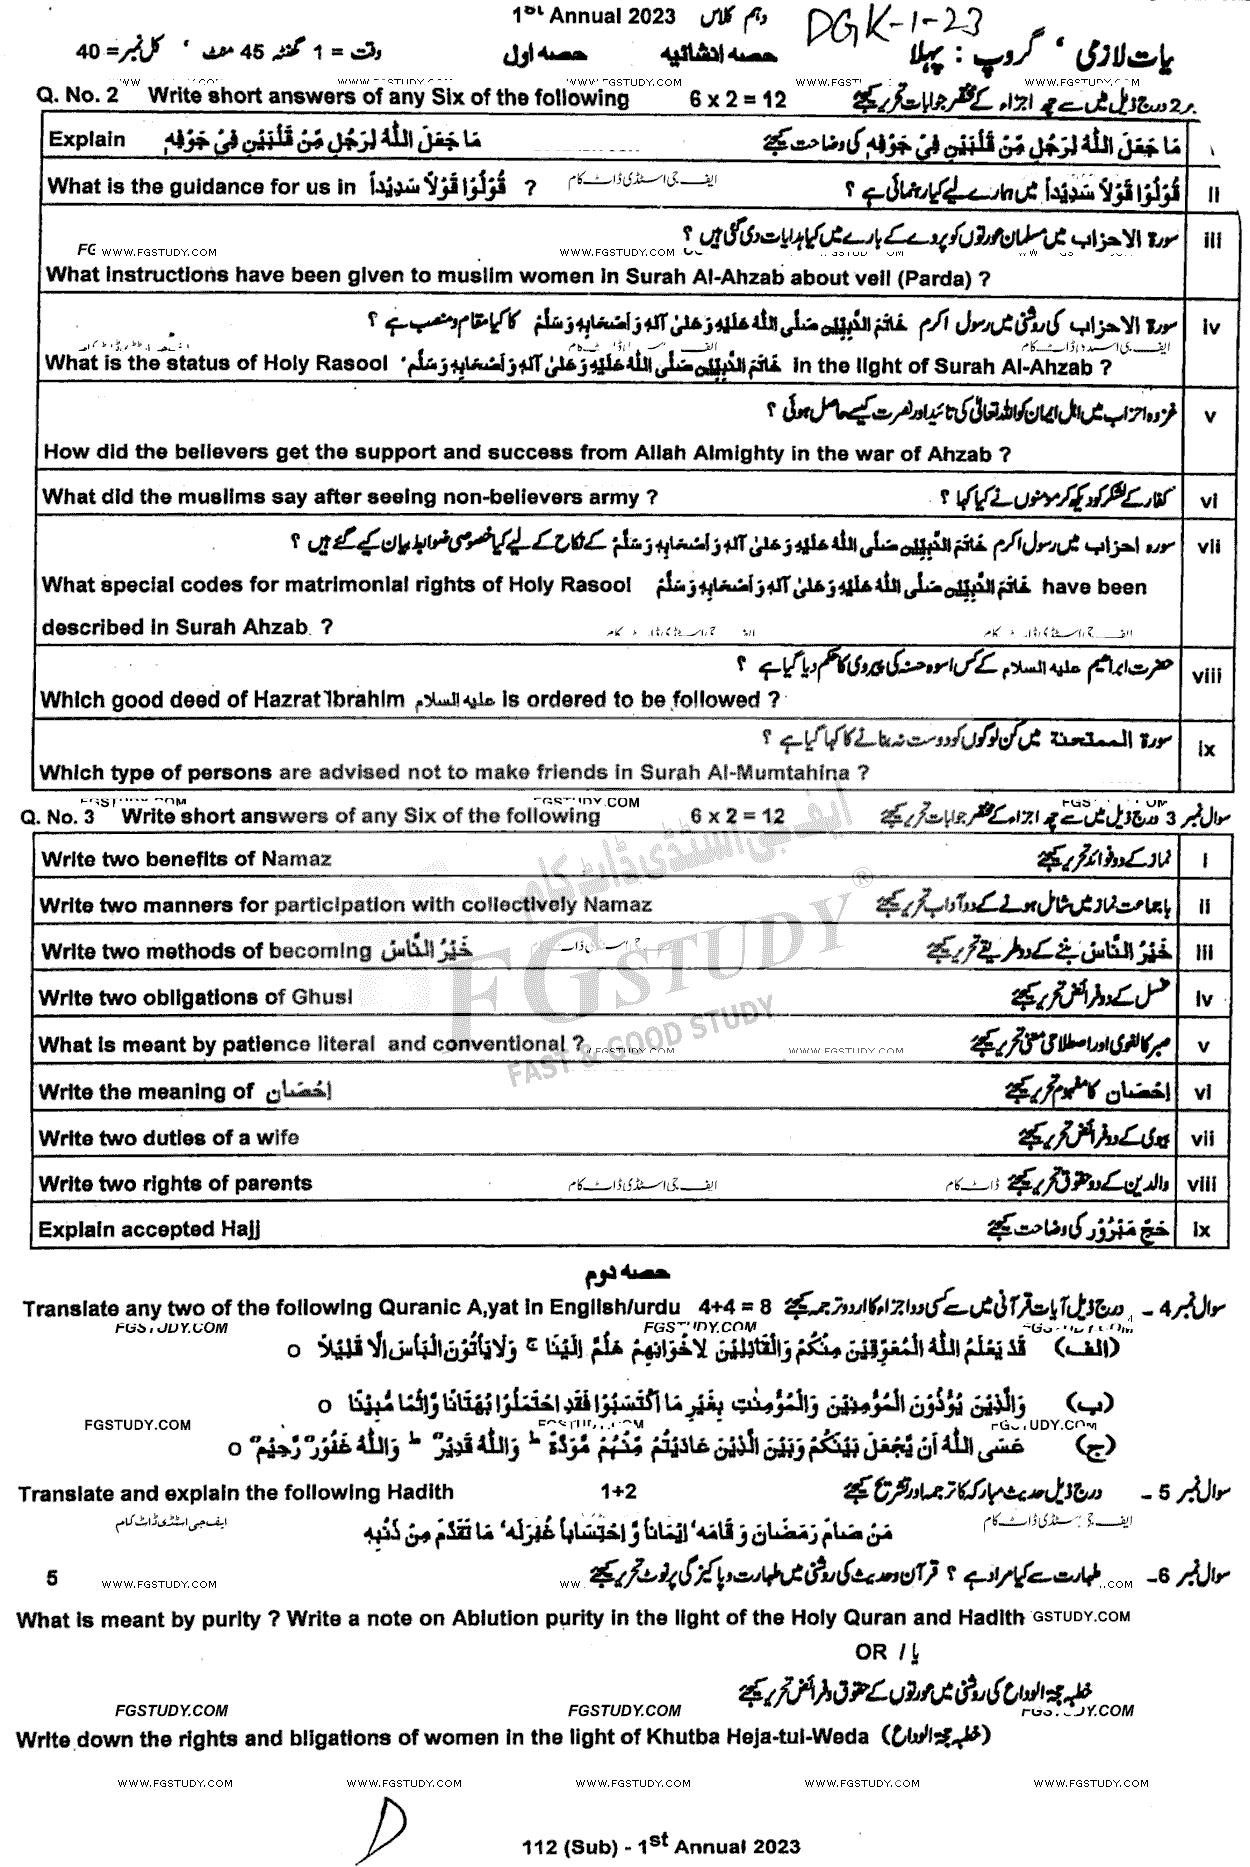 1st Annual 2023 دہم کلاس DGK-1-23
یات لازمی ، گروپ : پہلا حصہ انشائیہ حصہ اول وقت = 1 گھنٹہ 45 منٹ ، کل نمبر = 40
WWW.FGSTUDY.COM WWW.FGSTUDY.COM
Q. No. 2 Write short answers of any Six of the following 6 x 2 = 12 بر 2 درج ذیل میں سے چھ اجزاء کے مختصر جوابات تحریر کیجئے
Explain مَا جَعَلَ اللّٰهُ لِرَجُلٍ مِّنْ قَلْبَيْنِ فِيْ جَوْفِهٖ مَا جَعَلَ اللّٰهُ لِرَجُلٍ مِّنْ قَلْبَيْنِ فِيْ جَوْفِهٖ کی وضاحت کیجئے
What is the guidance for us in قُوْلُوْا قَوْلًا سَدِيْدًا ? ایف جی اسٹڈی ڈاٹ کام قُوْلُوْا قَوْلًا سَدِيْدًا میں ہمارے لیے کیا رہنمائی ہے ؟ ii
سورۃ الاحزاب میں مسلمان عورتوں کو پردے کے بارے میں کیا ہدایات دی گئی ہیں ؟ iii
WWW.FGSTUDY.COM WWW.FGSTUDY.COM
What instructions have been given to muslim women in Surah Al-Ahzab about veil (Parda) ?
سورۃ الاحزاب کی روشنی میں رسول اکرم خَاتَمُ النَّبِيّٖنَ صَلَّى اللهُ عَلَيْهِ وَعَلٰى آلِهٖ وَأَصْحَابِهٖ وَسَلَّمَ کا کیا مقام و منصب ہے ؟ iv
What is the status of Holy Rasool خَاتَمُ النَّبِيّٖنَ صَلَّى اللهُ عَلَيْهِ وَعَلٰى آلِهٖ وَأَصْحَابِهٖ وَسَلَّمَ in the light of Surah Al-Ahzab ?
غزوہ احزاب میں اہل ایمان کو اللہ تعالیٰ کی تائید اور نصرت کیسے حاصل ہوئی ؟ v
How did the believers get the support and success from Allah Almighty in the war of Ahzab ?
What did the muslims say after seeing non-believers army ? کفار کے لشکر کو دیکھ کر مومنوں نے کیا کہا ؟ vi
سورہ احزاب میں رسول اکرم خَاتَمُ النَّبِيّٖنَ صَلَّى اللهُ عَلَيْهِ وَعَلٰى آلِهٖ وَأَصْحَابِهٖ وَسَلَّمَ کے نکاح کے لیے کیا خصوصی ضوابط بیان کیے گئے ہیں ؟ vii
What special codes for matrimonial rights of Holy Rasool خَاتَمُ النَّبِيّٖنَ صَلَّى اللهُ عَلَيْهِ وَعَلٰى آلِهٖ وَأَصْحَابِهٖ وَسَلَّمَ have been
described in Surah Ahzab. ?
حضرت ابراہیم علیہ السلام کے کس اسوہ حسنہ کی پیروی کا حکم دیا گیا ہے ؟ viii
Which good deed of Hazrat Ibrahim علیہ السلام is ordered to be followed ?
سورۃ الممتحنة میں کن لوگوں کو دوست نہ بنانے کا کہا گیا ہے ؟ ix
Which type of persons are advised not to make friends in Surah Al-Mumtahina ?
Q. No. 3 Write short answers of any Six of the following 6 x 2 = 12 سوال نمبر 3 درج ذیل میں سے چھ اجزاء کے مختصر جوابات تحریر کیجئے
Write two benefits of Namaz نماز کے دو فوائد تحریر کیجئے i
Write two manners for participation with collectively Namaz باجماعت نماز میں شامل ہونے کے دو آداب تحریر کیجئے ii
Write two methods of becoming خَيْرُ النَّاسِ خَيْرُ النَّاسِ بننے کے دو طریقے تحریر کیجئے iii
Write two obligations of Ghusl غسل کے دو فرائض تحریر کیجئے iv
What is meant by patience literal and conventional ? WWW.FGSTUDY.COM صبر کا لغوی اور اصطلاحی معنی تحریر کیجئے v
Write the meaning of اِحْصَان اِحْصَان کا مفہوم تحریر کیجئے vi
Write two duties of a wife بیوی کے دو فرائض تحریر کیجئے vii
Write two rights of parents ایف جی اسٹڈی ڈاٹ کام والدین کے دو حقوق تحریر کیجئے viii
Explain accepted Hajj حَجِّ مَبْرُوْر کی وضاحت کیجئے ix
ایف جی اسٹڈی ڈاٹ کام
FGSTUDY®
FAST & GOOD STUDY
حصہ دوم
Translate any two of the following Quranic A,yat in English/urdu 4+4 = 8 سوال نمبر 4 - درج ذیل آیات قرآنی میں سے کسی دو اجزاء کا اردو ترجمہ کیجئے
FGSTUDY.COM FGSTUDY.COM FGSTUDY.COM
(الف) قَدْ يَعْلَمُ اللّٰهُ الْمُعَوِّقِيْنَ مِنْكُمْ وَالْقَآئِلِيْنَ لِاِخْوَانِهِمْ هَلُمَّ اِلَيْنَا ۚ وَلَا يَأْتُوْنَ الْبَأْسَ اِلَّا قَلِيْلًا o
(ب) وَالَّذِيْنَ يُؤْذُوْنَ الْمُؤْمِنِيْنَ وَالْمُؤْمِنٰتِ بِغَيْرِ مَا اكْتَسَبُوْا فَقَدِ احْتَمَلُوْا بُهْتَانًا وَّاِثْمًا مُّبِيْنًا o
FGSTUDY.COM FGSTUDY.COM FGSTUDY.COM
(ج) عَسَى اللّٰهُ اَنْ يَّجْعَلَ بَيْنَكُمْ وَبَيْنَ الَّذِيْنَ عَادَيْتُمْ مِّنْهُمْ مَّوَدَّةً ؕ وَاللّٰهُ قَدِيْرٌ ؕ وَاللّٰهُ غَفُوْرٌ رَّحِيْمٌ o
Translate and explain the following Hadith 1+2 سوال نمبر 5 - درج ذیل حدیث مبارکہ کا ترجمہ اور تشریح کیجئے
ایف جی اسٹڈی ڈاٹ کام مَنْ صَامَ رَمَضَانَ وَ قَامَهٗ اِيْمَانًا وَّ احْتِسَابًا غُفِرَ لَهٗ مَا تَقَدَّمَ مِنْ ذَنْبِهٖ
5 WWW.FGSTUDY.COM سوال نمبر 6- طہارت سے کیا مراد ہے ؟ قرآن و حدیث کی روشنی میں طہارت و پاکیزگی پر نوٹ تحریر کیجئے
What is meant by purity ? Write a note on Ablution purity in the light of the Holy Quran and Hadith GSTUDY.COM
OR / یا
خطبہ حجۃ الوداع کی روشنی میں عورتوں کے حقوق و فرائض تحریر کیجئے
FGSTUDY.COM FGSTUDY.COM FGSTUDY.COM
Write down the rights and bligations of women in the light of Khutba Heja-tul-Weda (خطبہ حجۃ الوداع)
WWW.FGSTUDY.COM WWW.FGSTUDY.COM WWW.FGSTUDY.COM WWW.FGSTUDY.COM WWW.FGSTUDY.COM
112 (Sub) - 1st Annual 2023